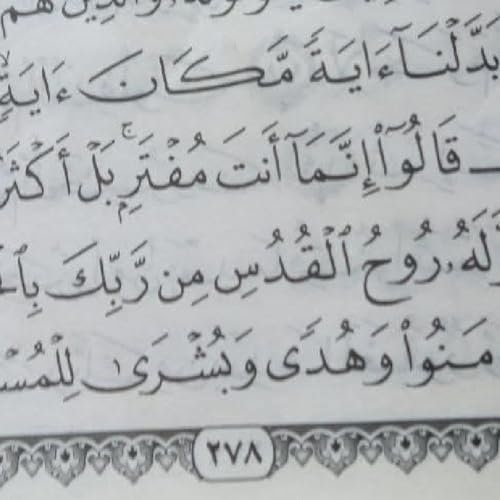 والذين هم
بَدَّلْنَآ ءَايَةً مَّكَانَ ءَايَةٍۙ
قَالُوٓا۟ إِنَّمَآ أَنتَ مُفْتَرِۭۚ بَلْ أَكْثَرُ
رُوحُ ٱلْقُدُسِ مِن رَّبِّكَ
وَهُدًى وَبُشْرَىٰ
٢٧٨